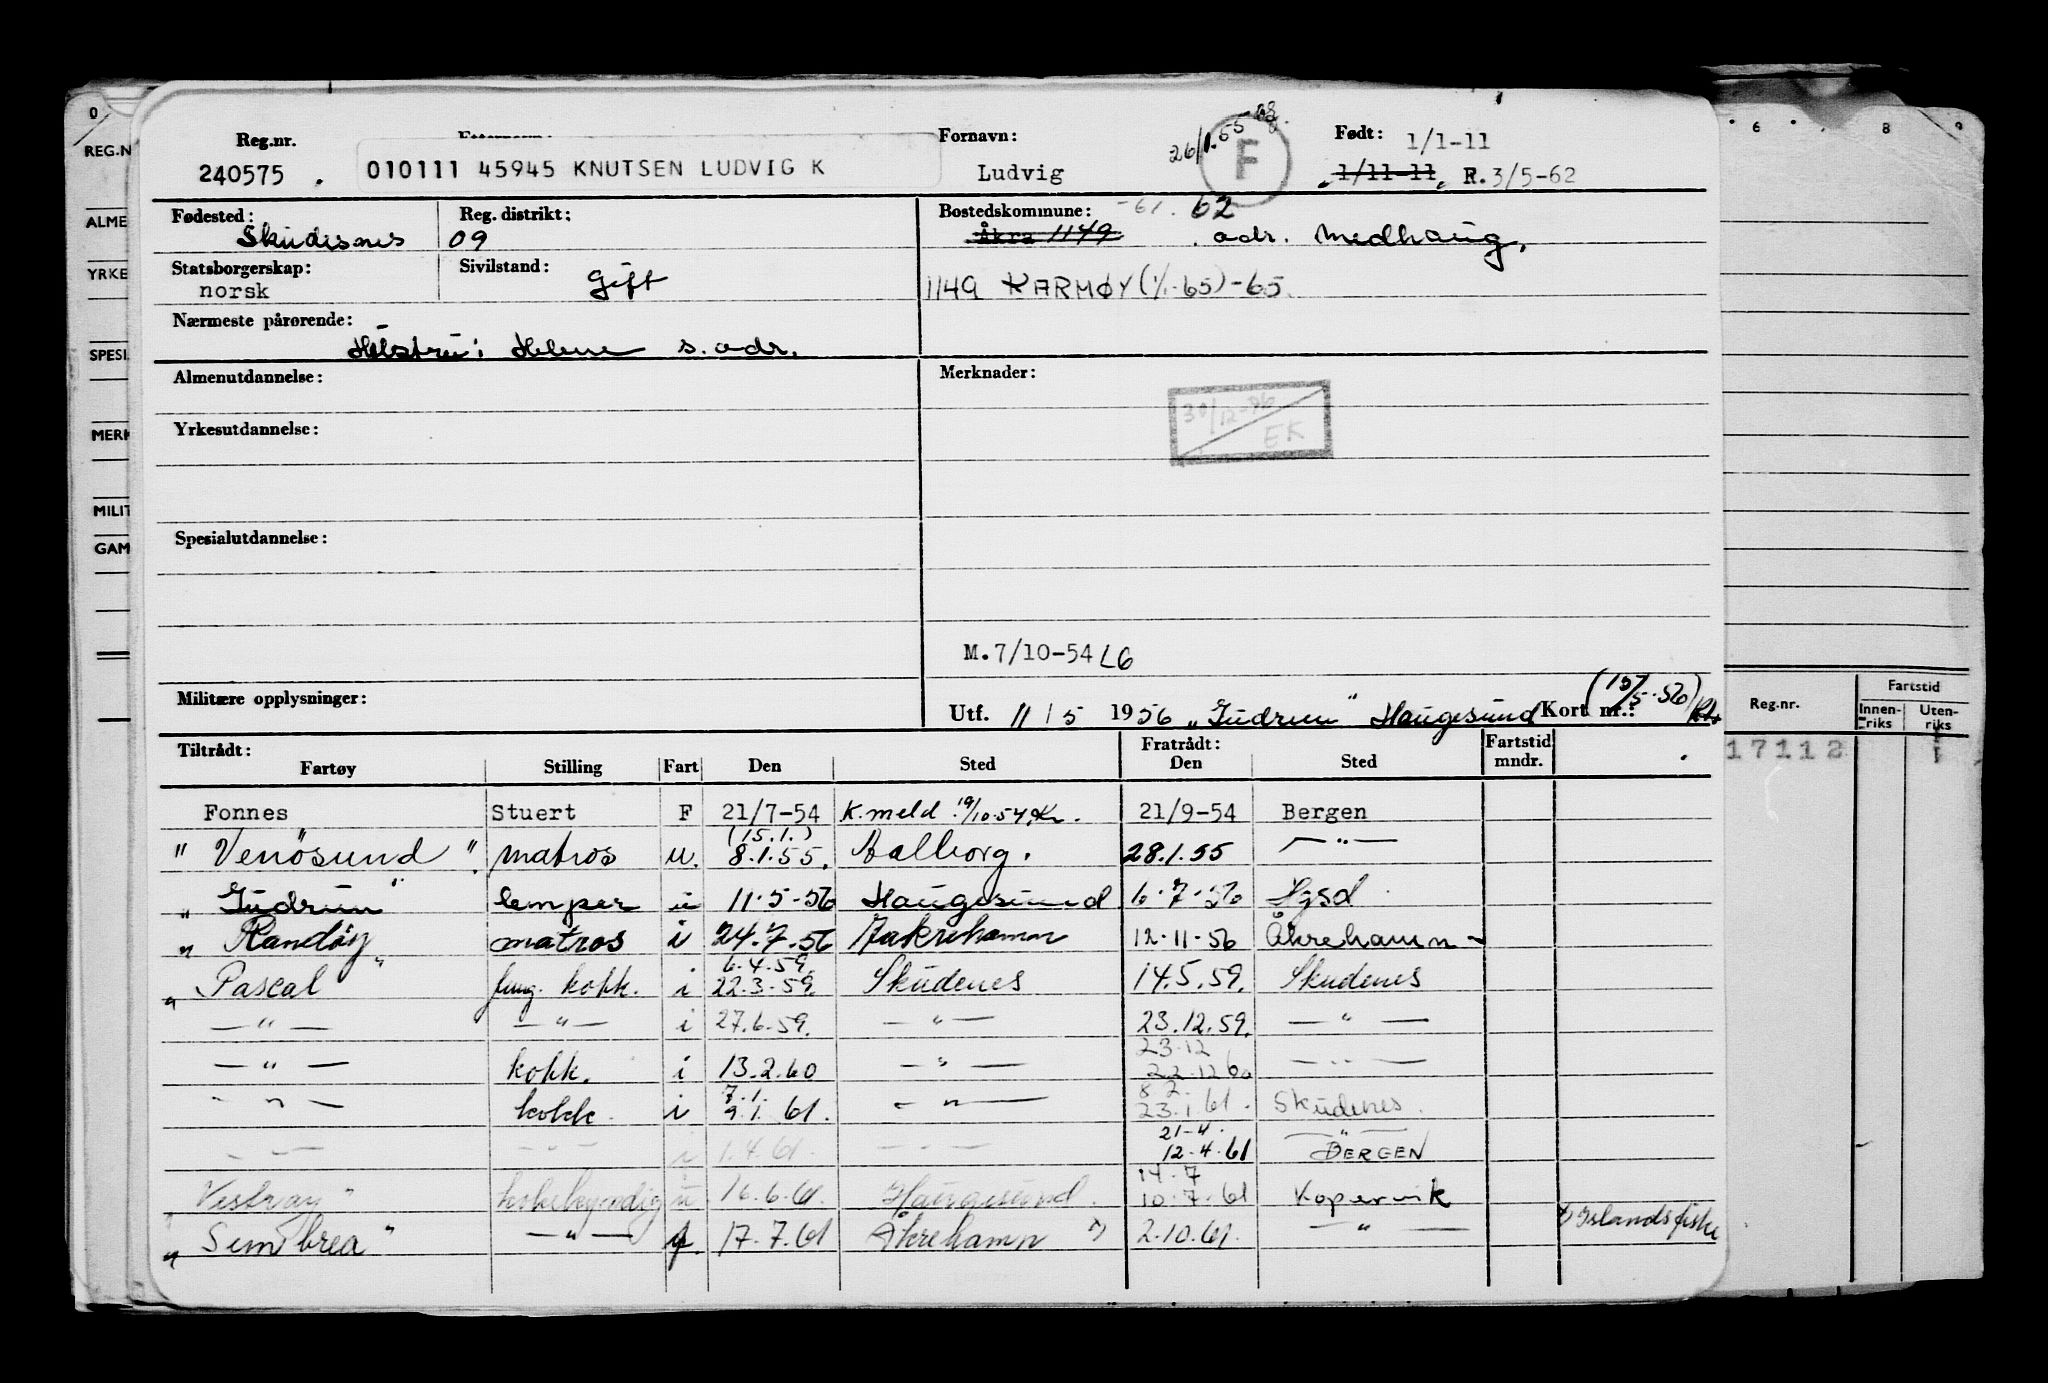 Reg.nr. Fornavn: Født: 1/1-11
240575 . 010111 45945 KNUTSEN LUDVIG K Ludvig 26/1.55 F 1/11-11 R.3/5-62
Fødested: Reg. distrikt: Bostedskommune: -61. 62
Skudesnes 09 Åkra 1149 adr. Medhaug,
Statsborgerskap: Sivilstand: Gift
norsk 1149 KARMØY (1/1-65)-65.
Nærmeste pårørende:
Hustru: Helene s. adr.
Almenutdannelse: Merknader:
30/12-76
EK
Yrkesutdannelse:
Spesialutdannelse:
M.7/10-54 LG
Militære opplysninger: (15/5-56)
Utf. 11/5 1956 "Gudrun" Haugesund Kort nr.:
Tiltrådt: Fratrådt: Fartstid
Fartøy Stilling Fart Den Sted Den Sted mndr.
Fonnes Stuert F 21/7-54 K.meld 19/10.54 Kr. 21/9-54 Bergen
(15.1.)
"Venösund". matros u. 8.1.55. Aalborg. 28.1.55 — " —
"Gudrun" lemper u 11.5-56 Haugesund 6.7.56 Hgsd.
"Randöy" matros i 24.7.56 Aakrehamn 12-11-56 Åkrehamn -
6.4.59.
"Pascal fung. kokk. i 22.3.59. Skudenes 14.5.59. Skudenes
— " — — " — i 27.6.59. — " — 23.12.59. — " —
23.12
— " — kokk. i 13.2.60 — " — 22.12.60 — " —
7.1. 8.2.
— " — kokk. i 9.1.61. — " — 23.1.61. Skudenes.
21-4. — " —
— " — — " — i 1.4.61. — " — 12.4.61 BERGEN
14.7
"Vestray" kokkekyndig u 16.6.61. Haugesund. 10.7.61 Kopervik
"Sembrea" — " — f. 17.7.61 Åkrehamn x) 2.10.61. — " — x) Islandsfiske
0
REG.N
ALME
YRKE
SPESI.
MERK
MILIT
GAM
6 8 9
Reg.nr. Fartstid
Innen-riks Uten-riks
17112